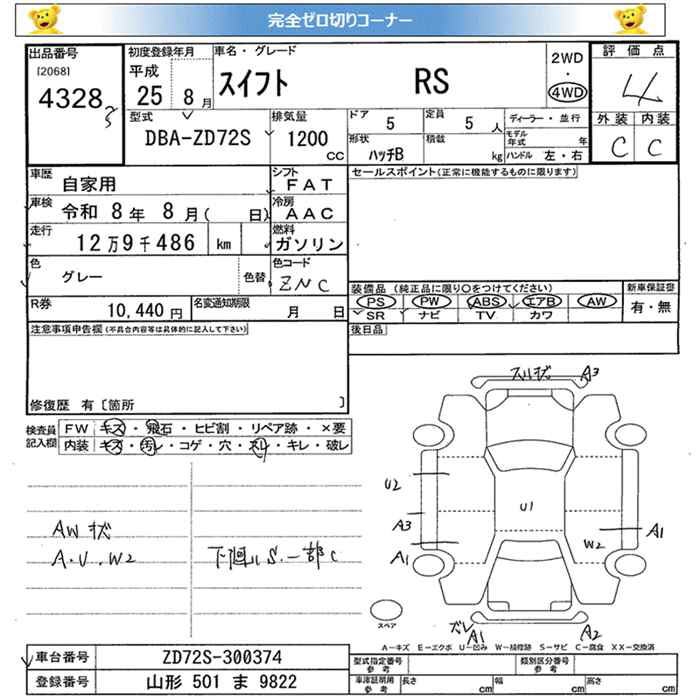 完全ゼロ切りコーナー
出品番号
[2068]
4328
初度登録年月
平成
25 8 月
車名・グレード
スイフト RS
2WD
・
4WD
評価点
4
外装 内装
C C
型式
DBA-ZD72S
排気量
1200
CC
ドア
5
定員
5 人
ディーラー・並行
形状
ハッチB
積載
kg
モデル
年式 年
ハンドル 左・右
車歴
自家用
シフト
FAT
車検
令和 8 年 8 月( 日)
冷房
AAC
走行
12万9千486 km
燃料
ガソリン
色
グレー
色替
色コード
ZNC
R券
10,440 円
名変通知期限
月 日
セールスポイント(正常に機能するものに限ります)
装備品 (純正品に限り〇をつけてください)
新車保証書
PS PW ABS エアB AW
SR ナビ TV カワ
有・無
後日品
注意事項申告欄(不具合内容等は具体的に記入して下さい)
修復歴 有〔箇所 〕
検査員
記入欄
FW キズ・飛石・ヒビ割・リペア跡・×要
内装 キズ・汚レ・コゲ・穴・スレ・キレ・破レ
AW キズ
A・U・W2
下廻り S・一部C
スリキズ A3
U2
A3
A1
U1
A1
W2
ズレ
A1
A2
スペア
A-キズ E-エクボ U-凹み W-補修跡 S-サビ C-腐食 XX-交換済
車台番号
ZD72S-300374
登録番号
山形 501 ま 9822
型式指定番号
参考
類別区分番号
参考
車庫証明用
参考
長さ cm
幅 cm
高さ cm